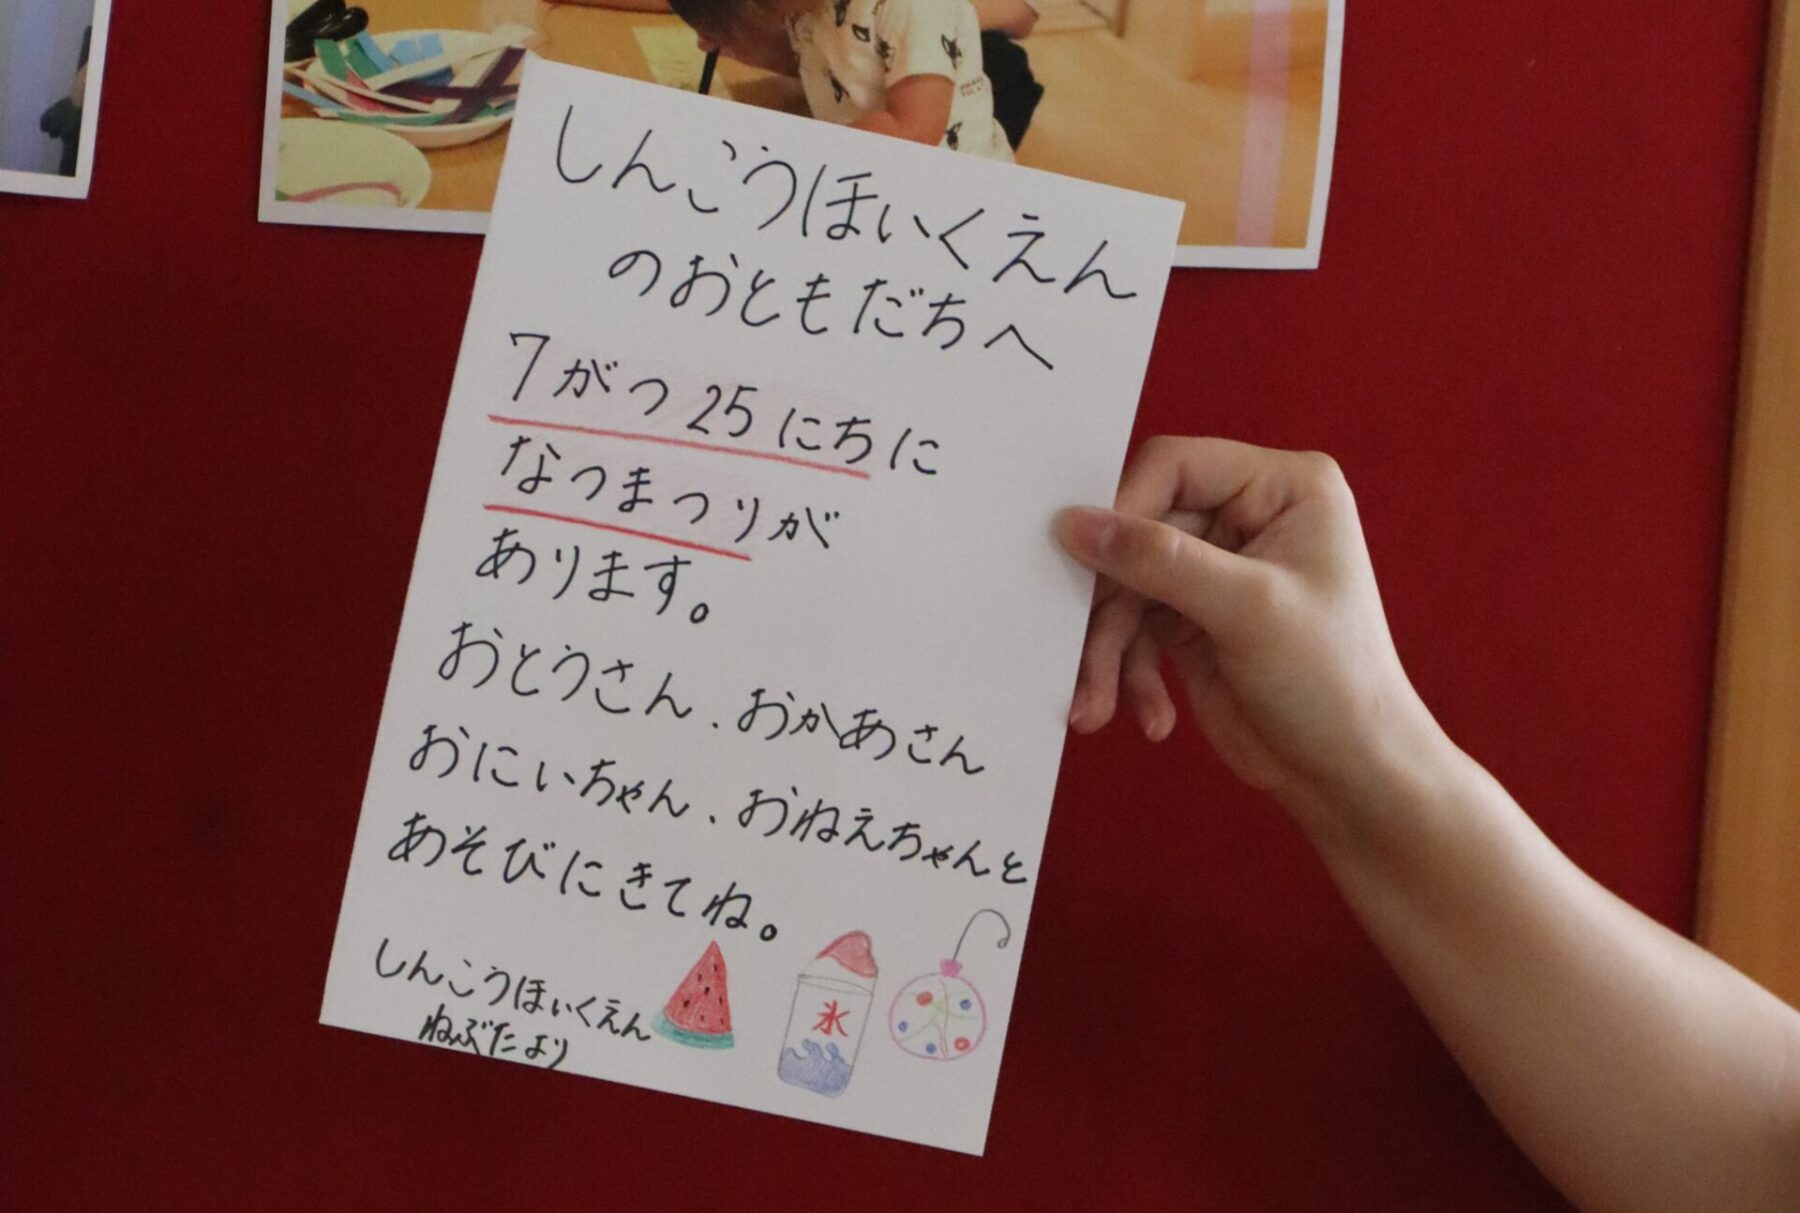 しんこうほいくえん
のおともだちへ
7がつ25にちに
なつまつりが
あります。
おとうさん、おかあさん
おにいちゃん、おねえちゃんと
あそびにきてね。
しんこうほいくえん
ねぶたより
氷